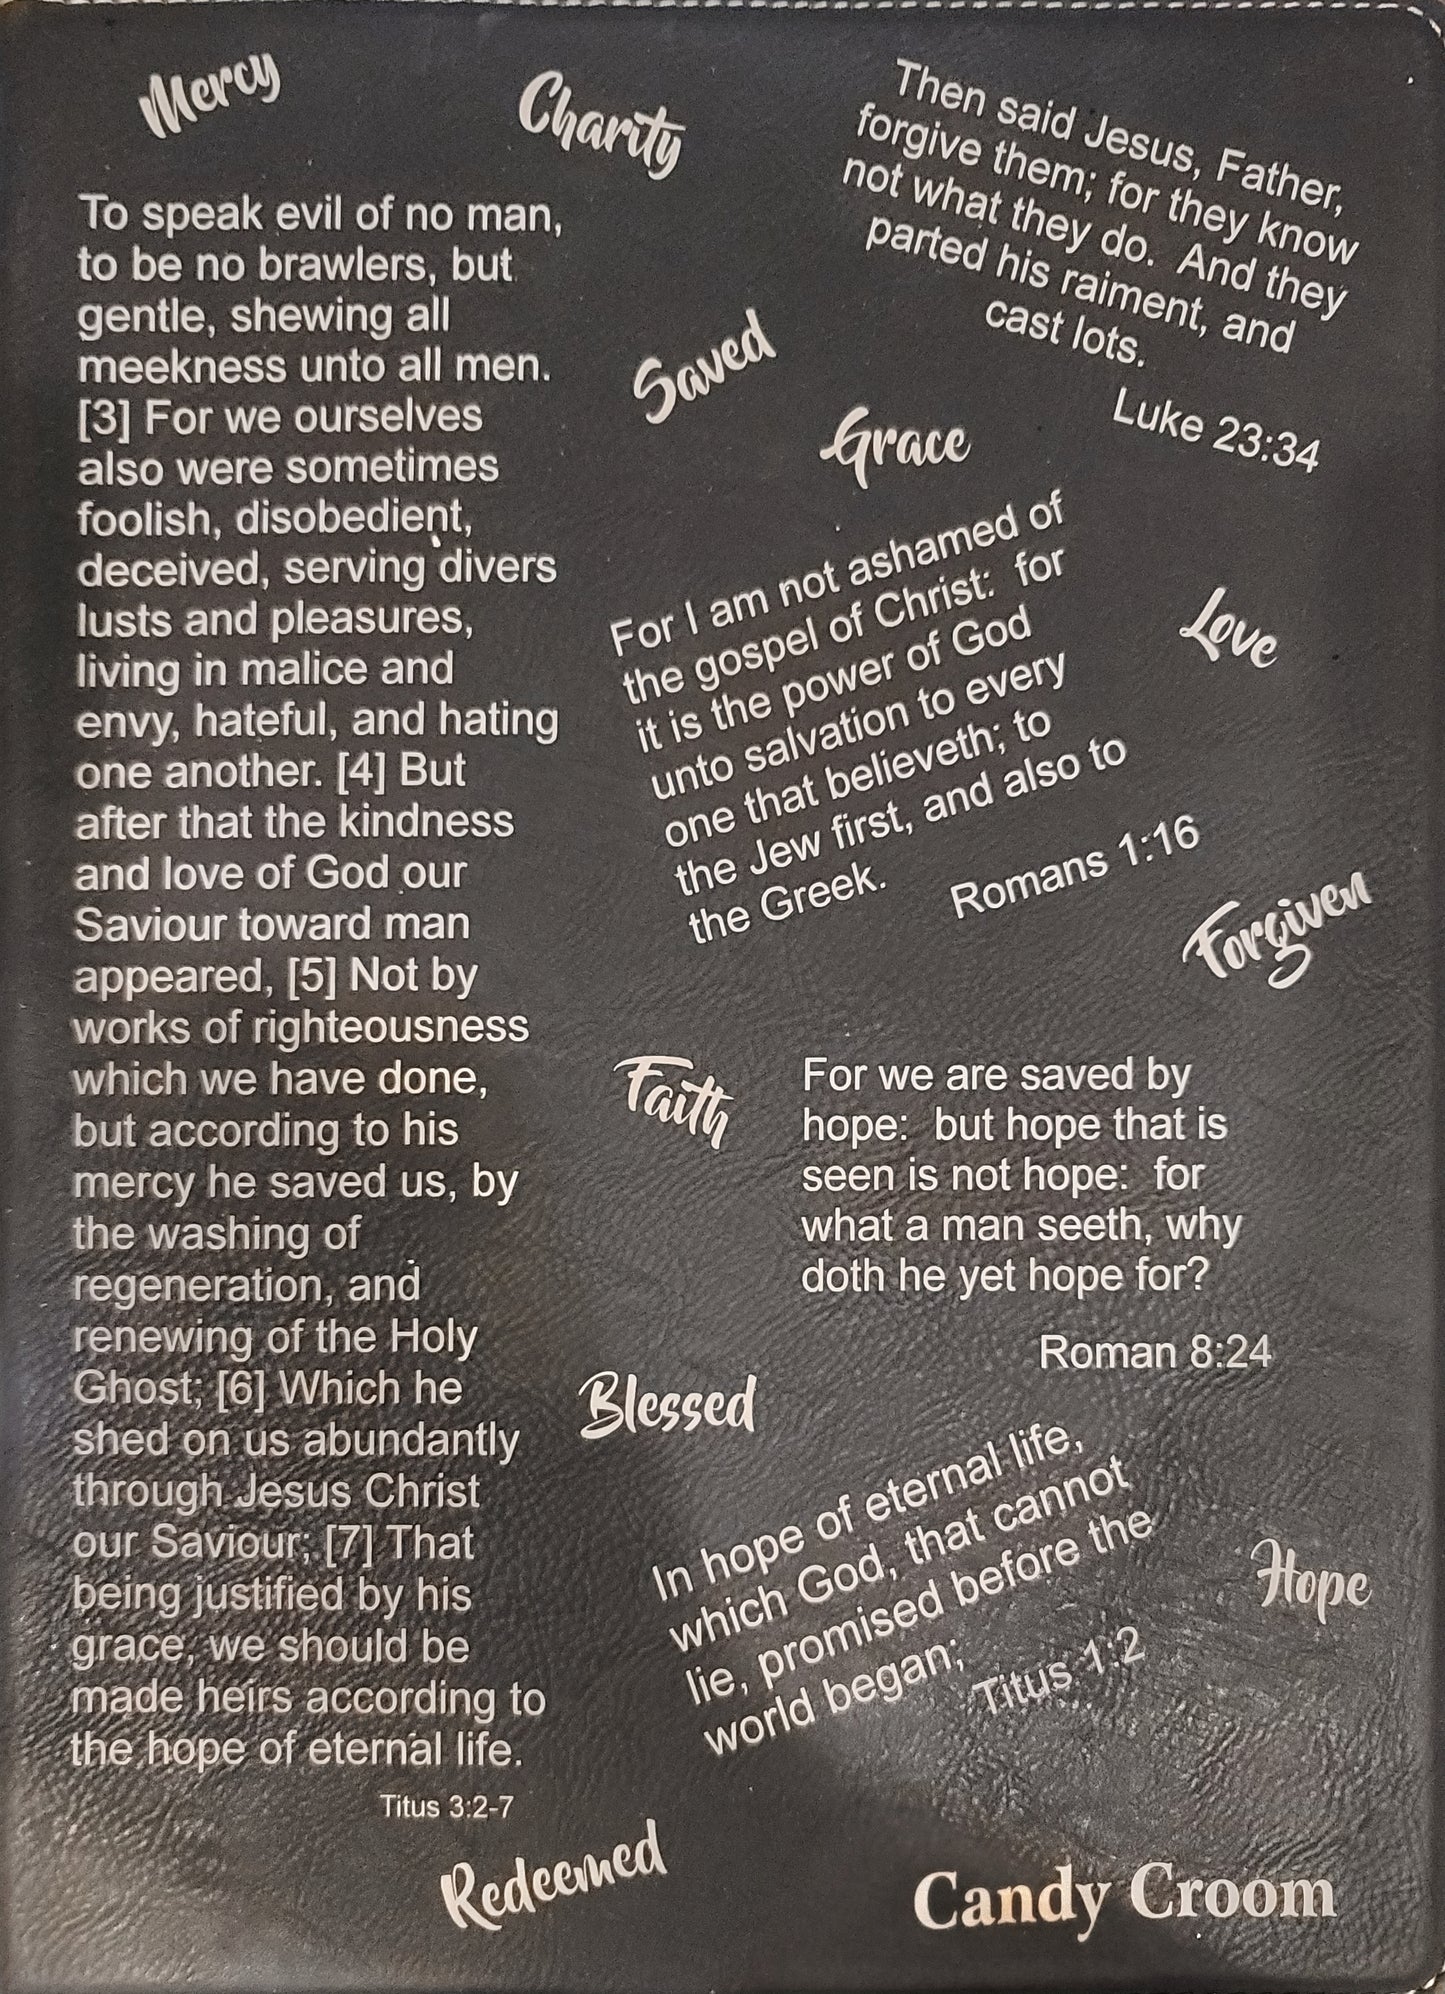 Mercy
Charity
Then said Jesus, Father,
forgive them; for they know
not what they do.  And they
parted his raiment, and
cast lots.
Luke 23:34
To speak evil of no man,
to be no brawlers, but
gentle, shewing all
meekness unto all men.
[3] For we ourselves
also were sometimes
foolish, disobedient,
deceived, serving divers
lusts and pleasures,
living in malice and
envy, hateful, and hating
one another. [4] But
after that the kindness
and love of God our
Saviour toward man
appeared, [5] Not by
works of righteousness
which we have done,
but according to his
mercy he saved us, by
the washing of
regeneration, and
renewing of the Holy
Ghost; [6] Which he
shed on us abundantly
through Jesus Christ
our Saviour; [7] That
being justified by his
grace, we should be
made heirs according to
the hope of eternal life.
Titus 3:2-7
Saved
Grace
For I am not ashamed of
the gospel of Christ:  for
it is the power of God
unto salvation to every
one that believeth; to
the Jew first, and also to
the Greek.
Romans 1:16
Love
Forgiven
Faith
For we are saved by
hope:  but hope that is
seen is not hope:  for
what a man seeth, why
doth he yet hope for?
Roman 8:24
Blessed
In hope of eternal life,
which God, that cannot
lie, promised before the
world began;
Titus 1:2
Hope
Redeemed
Candy Croom